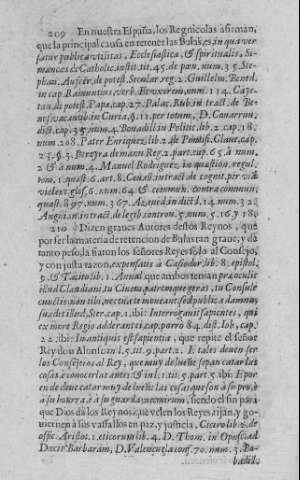 209 En nuestra España, los Regnicolas afirman,
que la principal causa en retener las Bulas, es, in qua ver
satur publica utilitas, Ecclesiastica, & spiritualis, Si-
mancas de Catholic. instit. tit. 45. de pan. num. 35. Ste-
phan. Aufrer. de potest. Secular. reg. 2. Guillelm. Bened.
in cap. Rainuntius, verb. Et uxorem, num. 114. Caye-
tan. de potest. Papæ, cap. 27. Palac. Rub. in tract. de Be-
in Curia, §. 11. per totum, D. Covarruv.
dict. cap. 35. num. 4. Bobadill. in Politic. lib. 2. cap. 18.
num. 208. Pater Enriquez, lib. 2. de Pontif. Clave, cap.
23. §. 3. Pereyra de manu Reg. 2. part. cap. 65. à num.
2. & à num. 4. Manuel Rodriguez in question. regul.
tom. 1. quæst. 6. art. 8. Cenall. in tract. de cognit. per viã
violent. glos. 6. num. 64. & commun. contra commun.
quæst. 897. num. 367. Azeved. in dict. l. 14. num. 32.
in tract. de legib. controv. 5. num. 5. 16. y 18.
210 Dizen graves Autores destos Reynos, que
por ser la materia de retencion de Bulas tan grave, y dã
tanto peso, la fiaron los señores Reyes solo al Consejo,
y con justa razon, expensatis à Casiodor. lib. 8. epistol.
9. & Tacit. lib. 1. Annal. que ambos tenian præ oculis
el Claudiani, tu Civem, patremque geras, tu Consule
cunctis non tibi, nec tua te moveant, sed publica damna,
suadet illord. Ster. cap. 1. ibi: Interrogavit sapientes, qui
ex more Regio adderant ei, cap. porrò 84. dist. Iob, cap.
22. ibi: In antiquis est sapientia, que repite el señor
Rey don Alonso in l. 5. tit. 9. part. 2. E tales deven ser
los Consejeros al Rey, que muy de lueñe sepan catar las
cosas è conocerlas antes: & in l. 1. tit. 5. part. 5. ibi: E por
en de deve catar muy de lueñe las cosas que son à su pro, è
à su honra, è à su guarda, siendo el fin para
que Dios dà los Reynos, que velen los Reyes, rijan, y go-
viernen à sus vassallos en paz, y justicia, Cicero lib. 2. de
offic. Aristot. 1. eticorum lib. 4. D. Thom. in Opusc. ad
Ducis Barbaram, D. Valençuela conf. 70. num. 3. Bo-
badill.